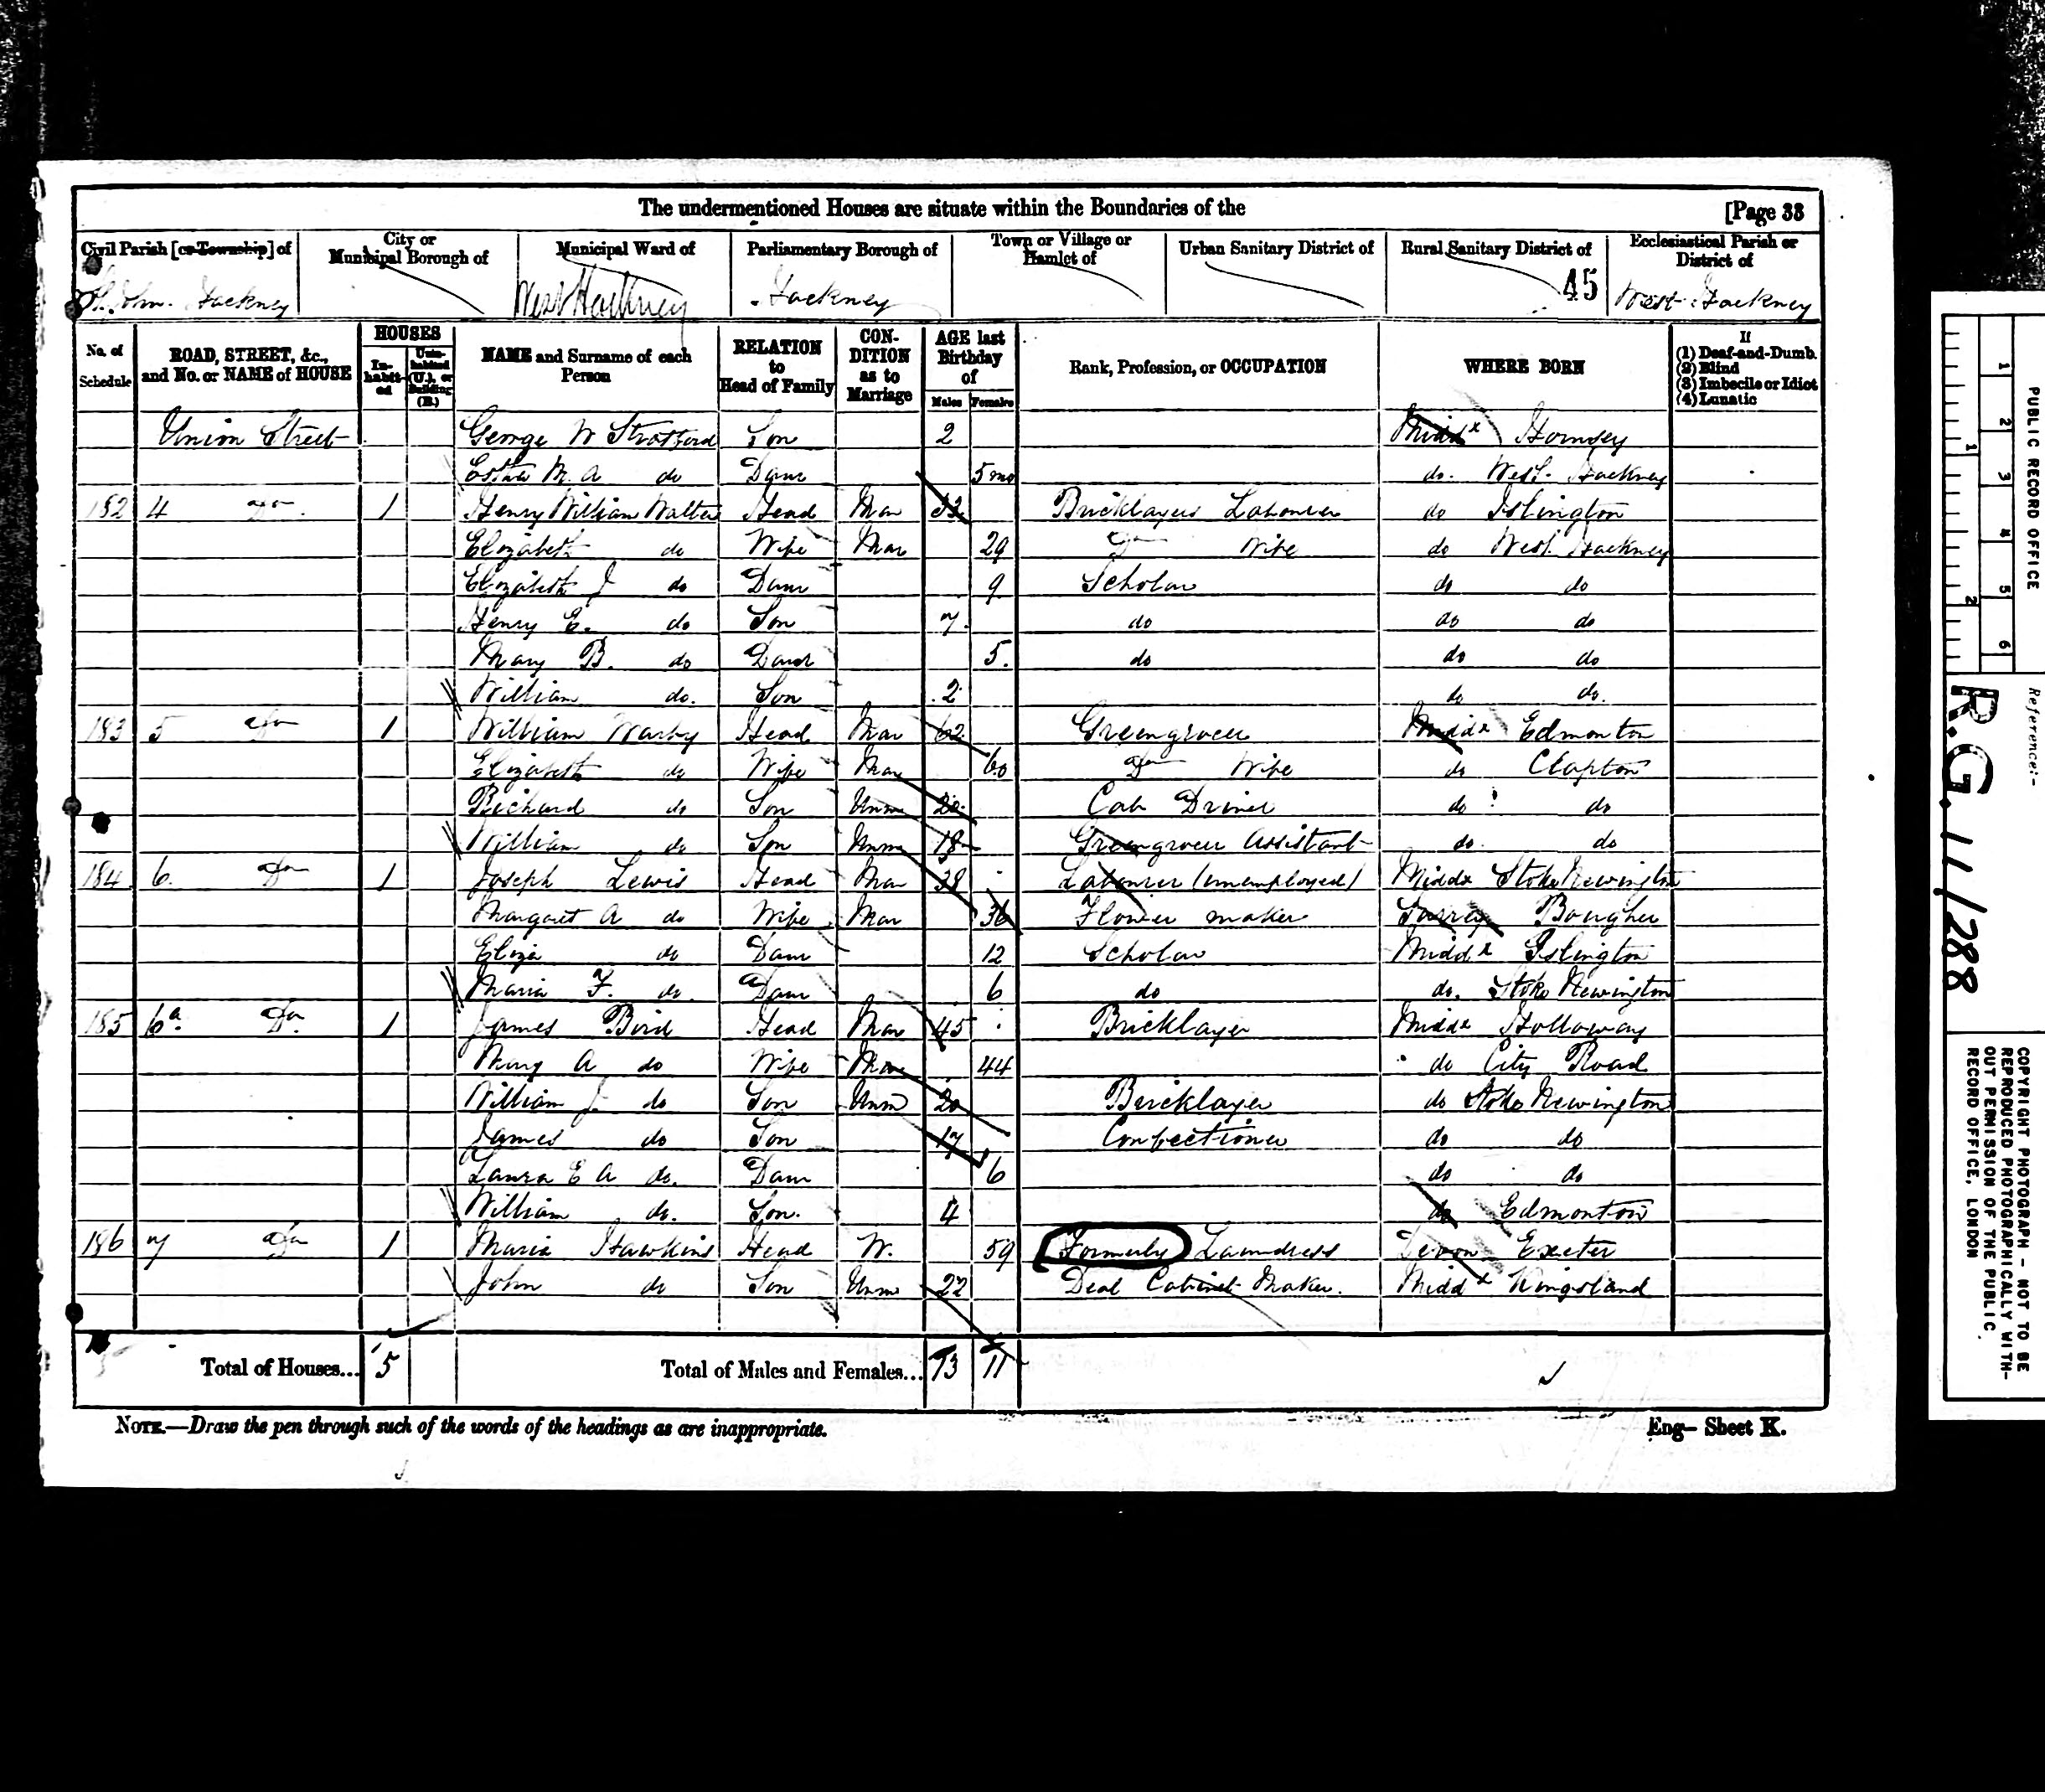 The undermentioned Houses are situate within the Boundaries of the [Page 33
Civil Parish [or Township] of City or Municipal Borough of Municipal Ward of Parliamentary Borough of Town or Village or Hamlet of Urban Sanitary District of Rural Sanitary District of Ecclesiastical Parish or District of
St. John. Hackney West Hackney Hackney 45 West Hackney
No. of Schedule ROAD, STREET, &c., and No. or NAME of HOUSE HOUSES Inhabited Uninhabited (U.), or Building (B.) NAME and Surname of each Person RELATION to Head of Family CONDITION as to Marriage AGE last Birthday of Males Females Rank, Profession, or OCCUPATION WHERE BORN If (1) Deaf-and-Dumb. (2) Blind (3) Imbecile or Idiot (4) Lunatic
Union Street George W Stratford Son 2 Middx Hornsey
M. A do Daur 5 mo do. West Hackney
182 4 Do. 1 Henry William Walter Head Mar 33 Bricklayers Labourer do Islington
Elizabeth do Wife Mar 29 Do Wife do West Hackney
Elizabeth J do Daur 9 Scholar do do
Henry E. do Son 7 do do do
Mary B. do Daur 5 do do do
William do. Son 2 do do.
183 5 Do 1 William Warby Head Mar 62 Greengrocer Middx Edmonton
Elizabeth do Wife Mar 60 Do Wife do Clapton
Richard do Son Unm 20 Cab Driver do do
William do Son Unm 18 Greengrocer Assistant do. do
184 6. Do 1 Joseph Lewis Head Mar 38 Labourer (unemployed) Middx Stoke Newington
Margaret A do Wife Mar 36 Flower maker Surrey
Eliza do Daur 12 Scholar Middx Islington
Maria F. do. Daur 6 do do. Stoke Newington
185 6a. Do. 1 James Bird Head Mar 45 Bricklayer Middx Holloway
Mary A do Wife Mar 44 do City Road
William J. do Son Unm 20 Bricklayer do Stoke Newington
James do Son 17 Confectioner do do
Laura E A do. Daur 6 do do
William do. Son. 4 do Edmonton
186 7 Do 1 Maria Hawkins Head W. 59 Formerly Laundress Devon Exeter
John do Son Unm 22 Deal Cabinet Maker. Middx Kingsland
Total of Houses... 5 Total of Males and Females... 13 11
NOTE.—Draw the pen through such of the words of the headings as are inappropriate. Eng— Sheet K.
PUBLIC RECORD OFFICE
1 2 3 4 5 6
1 2
Reference:-
R.G. 11/288
COPYRIGHT PHOTOGRAPH - NOT TO BE
REPRODUCED PHOTOGRAPHICALLY WITH-
OUT PERMISSION OF THE PUBLIC
RECORD OFFICE, LONDON